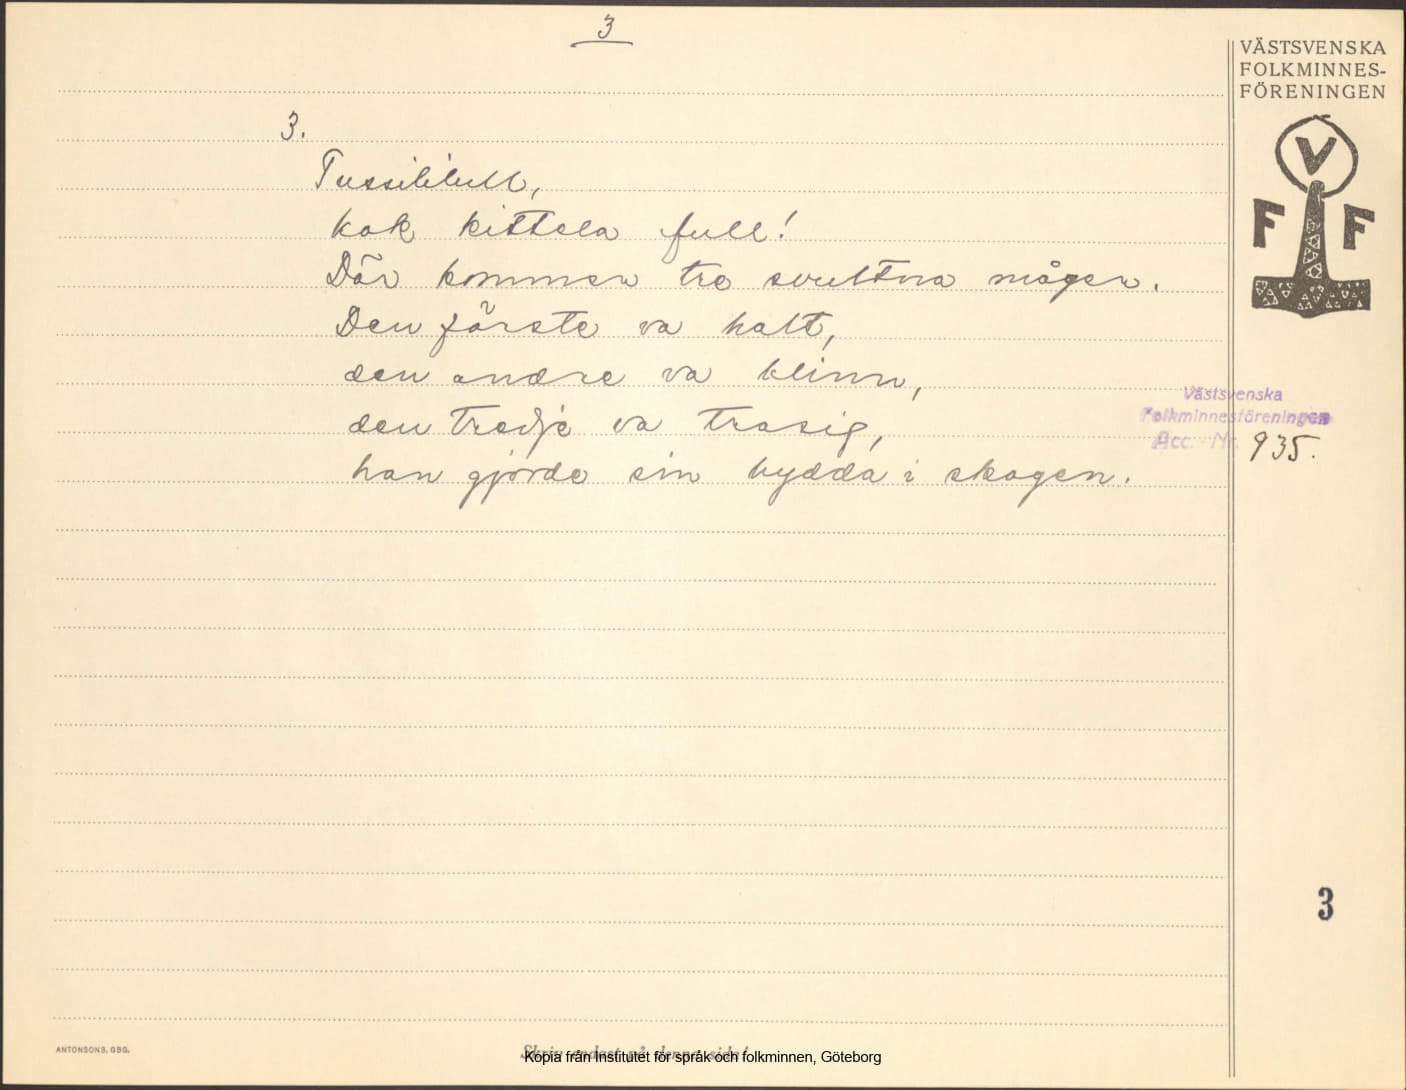 3
VÄSTSVENSKA
FOLKMINNES-
FÖRENINGEN
V
F F
3.
Tussililull,
kok kittela full!
Där kommer tre svultna mågar.
Den förste va halt,
den andre va blinn,
den tredje va trasig,
han gjorde sin hydda i skogen.
Västsvenska
Folkminnesföreningen
Acc. Nr. 935.
3
ANTONSONS, GBG.
Skriv endast på denna sida!
Kopia från Institutet för språk och folkminnen, Göteborg